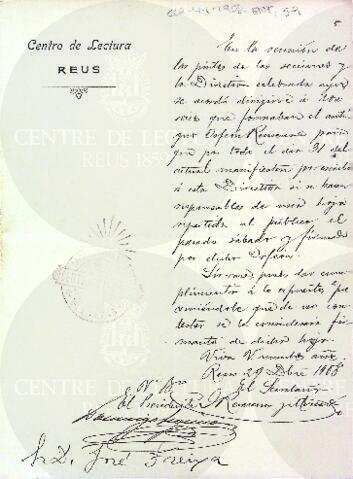 Centro de Lectura
REUS
5
En la reunión de
las juntas de las secciones y
la Directiva celebrada ayer
se acordó dirigirse á los
socios que formaban el anti-
guo Orfeón Reusense para
que por todo el día 31 del
actual manifiesten por escrito
á esta Directiva si se hacen
responsables de una hoja
repartida al público el
pasado sábado y firmada
por dicho Orfeón.
Sírvase pues dar cum-
plimiento á lo expuesto
que de no
contestar se le considerará fir-
mante de dicha hoja.
Viva V. muchos años.
Reus 29 Dbre 1908
Vº Bº
El Secretario
El Presidente
Sr. D. José Freixa
CENTRE DE LECTURA
REUS 1859